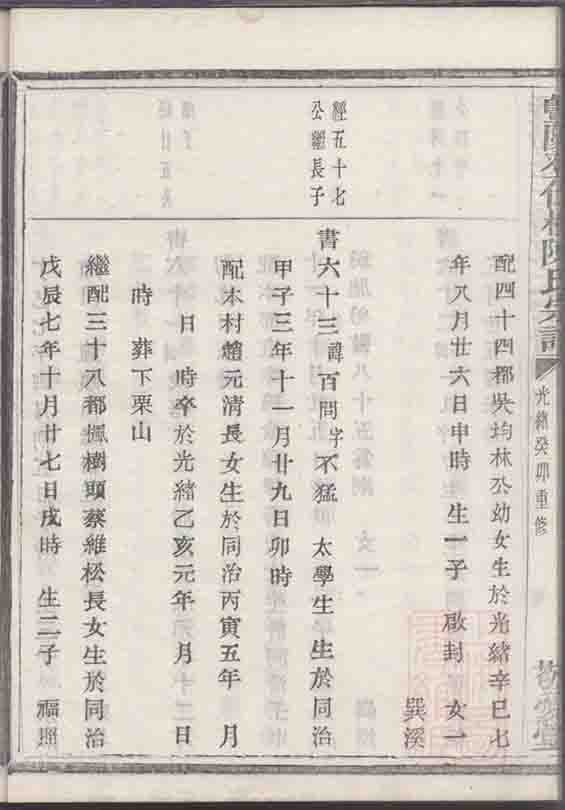 陳氏宗譜
光緒癸卯重修
堂
配四十四都吳均林公幼女生於光緒辛巳七
年八月廿六日申時 生一子 啟封 女一
巽溪
經五十七
公繼長子
書六十三諱百問字不猛 太學生生於同治
甲子三年十一月廿九日卯時
配本村趙元清長女生於同治丙寅五年 月
日 時卒於光緒乙亥元年 月十二日
時 葬下栗山
繼配三十八都楓樹頭蔡維松長女生於同治
戊辰七年十月廿七日戌時 生二子 福照